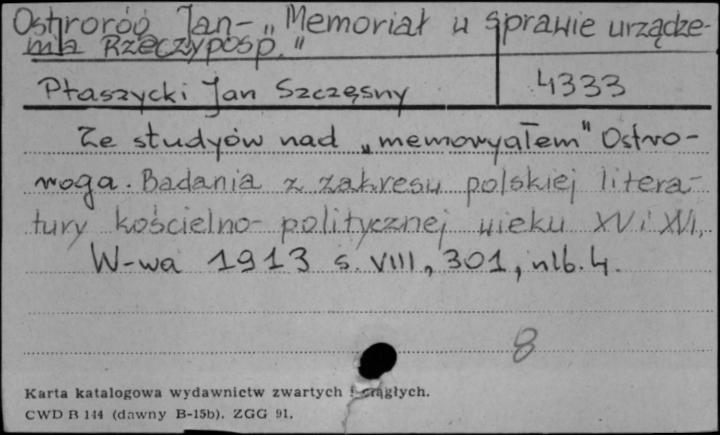 Ostroróg Jan - „Memoriał w sprawie urządze-
nia Rzeczyposp."
Ptaszycki Jan Szczęsny 4333
Ze studyów nad „memoryałem" Ostro-
roga. Badania z zakresu polskiej litera-
tury kościelno-politycznej wieku XV i XVI,
W-wa 1913 s. VIII, 301, nlb. 4.
8
Karta katalogowa wydawnictw zwartych i ciągłych.
CWD B 144 (dawny B-15b). ZGG 91.